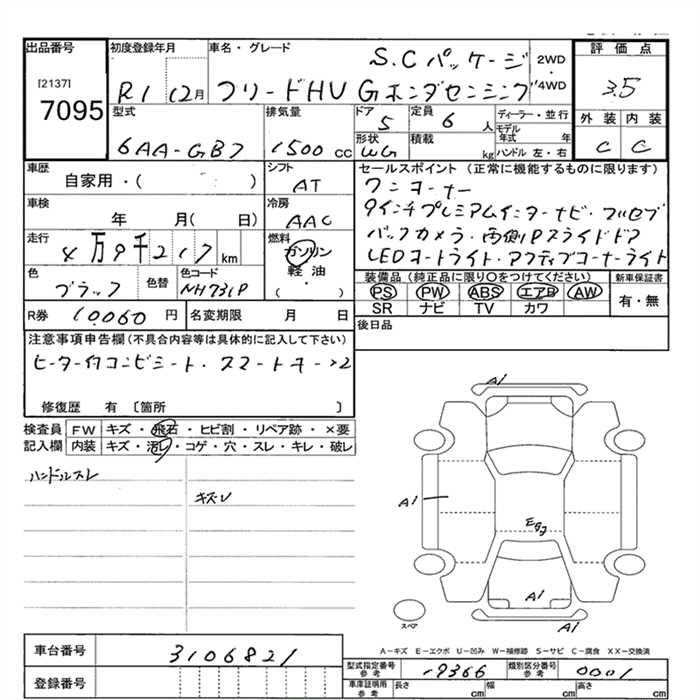 出品番号
[2137]
7095
初度登録年月
R1 12月
車名・グレード
S.Cパッケージ
フリードHV Gホンダセンシング
2WD・4WD
評価点
3.5
外装 内装
C C
型式
6AA-GB7
排気量
1500 CC
ドア
5
定員
6 人
形状
WG
積載
kg
ディーラー・並行
モデル年式 年
ハンドル 左・右
車歴
自家用・( )
シフト
AT
車検
年 月( 日)
冷房
AAC
走行
4万9千217km
燃料
ガソリン
軽油
( )
色
ブラック
色替
色コード
NH731P
R券
10060 円
名変期限
月 日
セールスポイント (正常に機能するものに限ります)
ワンオーナー
9インチプレミアムインターナビ・フルセグ
バックカメラ・両側Pスライドドア
LEDオートライト・アクティブコーナーライト
装備品(純正品に限り○をつけてください)
新車保証書
PS PW ABS エアB AW
SR ナビ TV カワ
有・無
後日品
注意事項申告欄(不具合内容等は具体的に記入して下さい)
ヒーター付コンビシート・スマートキー×2
修復歴 有 〔箇所 〕
検査員記入欄
FW キズ・飛石・ヒビ割・リペア跡・×要
内装 キズ・汚レ・コゲ・穴・スレ・キレ・破レ
ハンドルスレ
キズU
A1
A1
A1
A1
スペア
A-キズ E-エクボ U-凹み W-補修跡 S-サビ C-腐食 XX-交換済
車台番号
3106821
登録番号
型式指定番号 参考
19366
類別区分番号 参考
0001
車庫証明用 参考
長さ cm
幅 cm
高さ cm